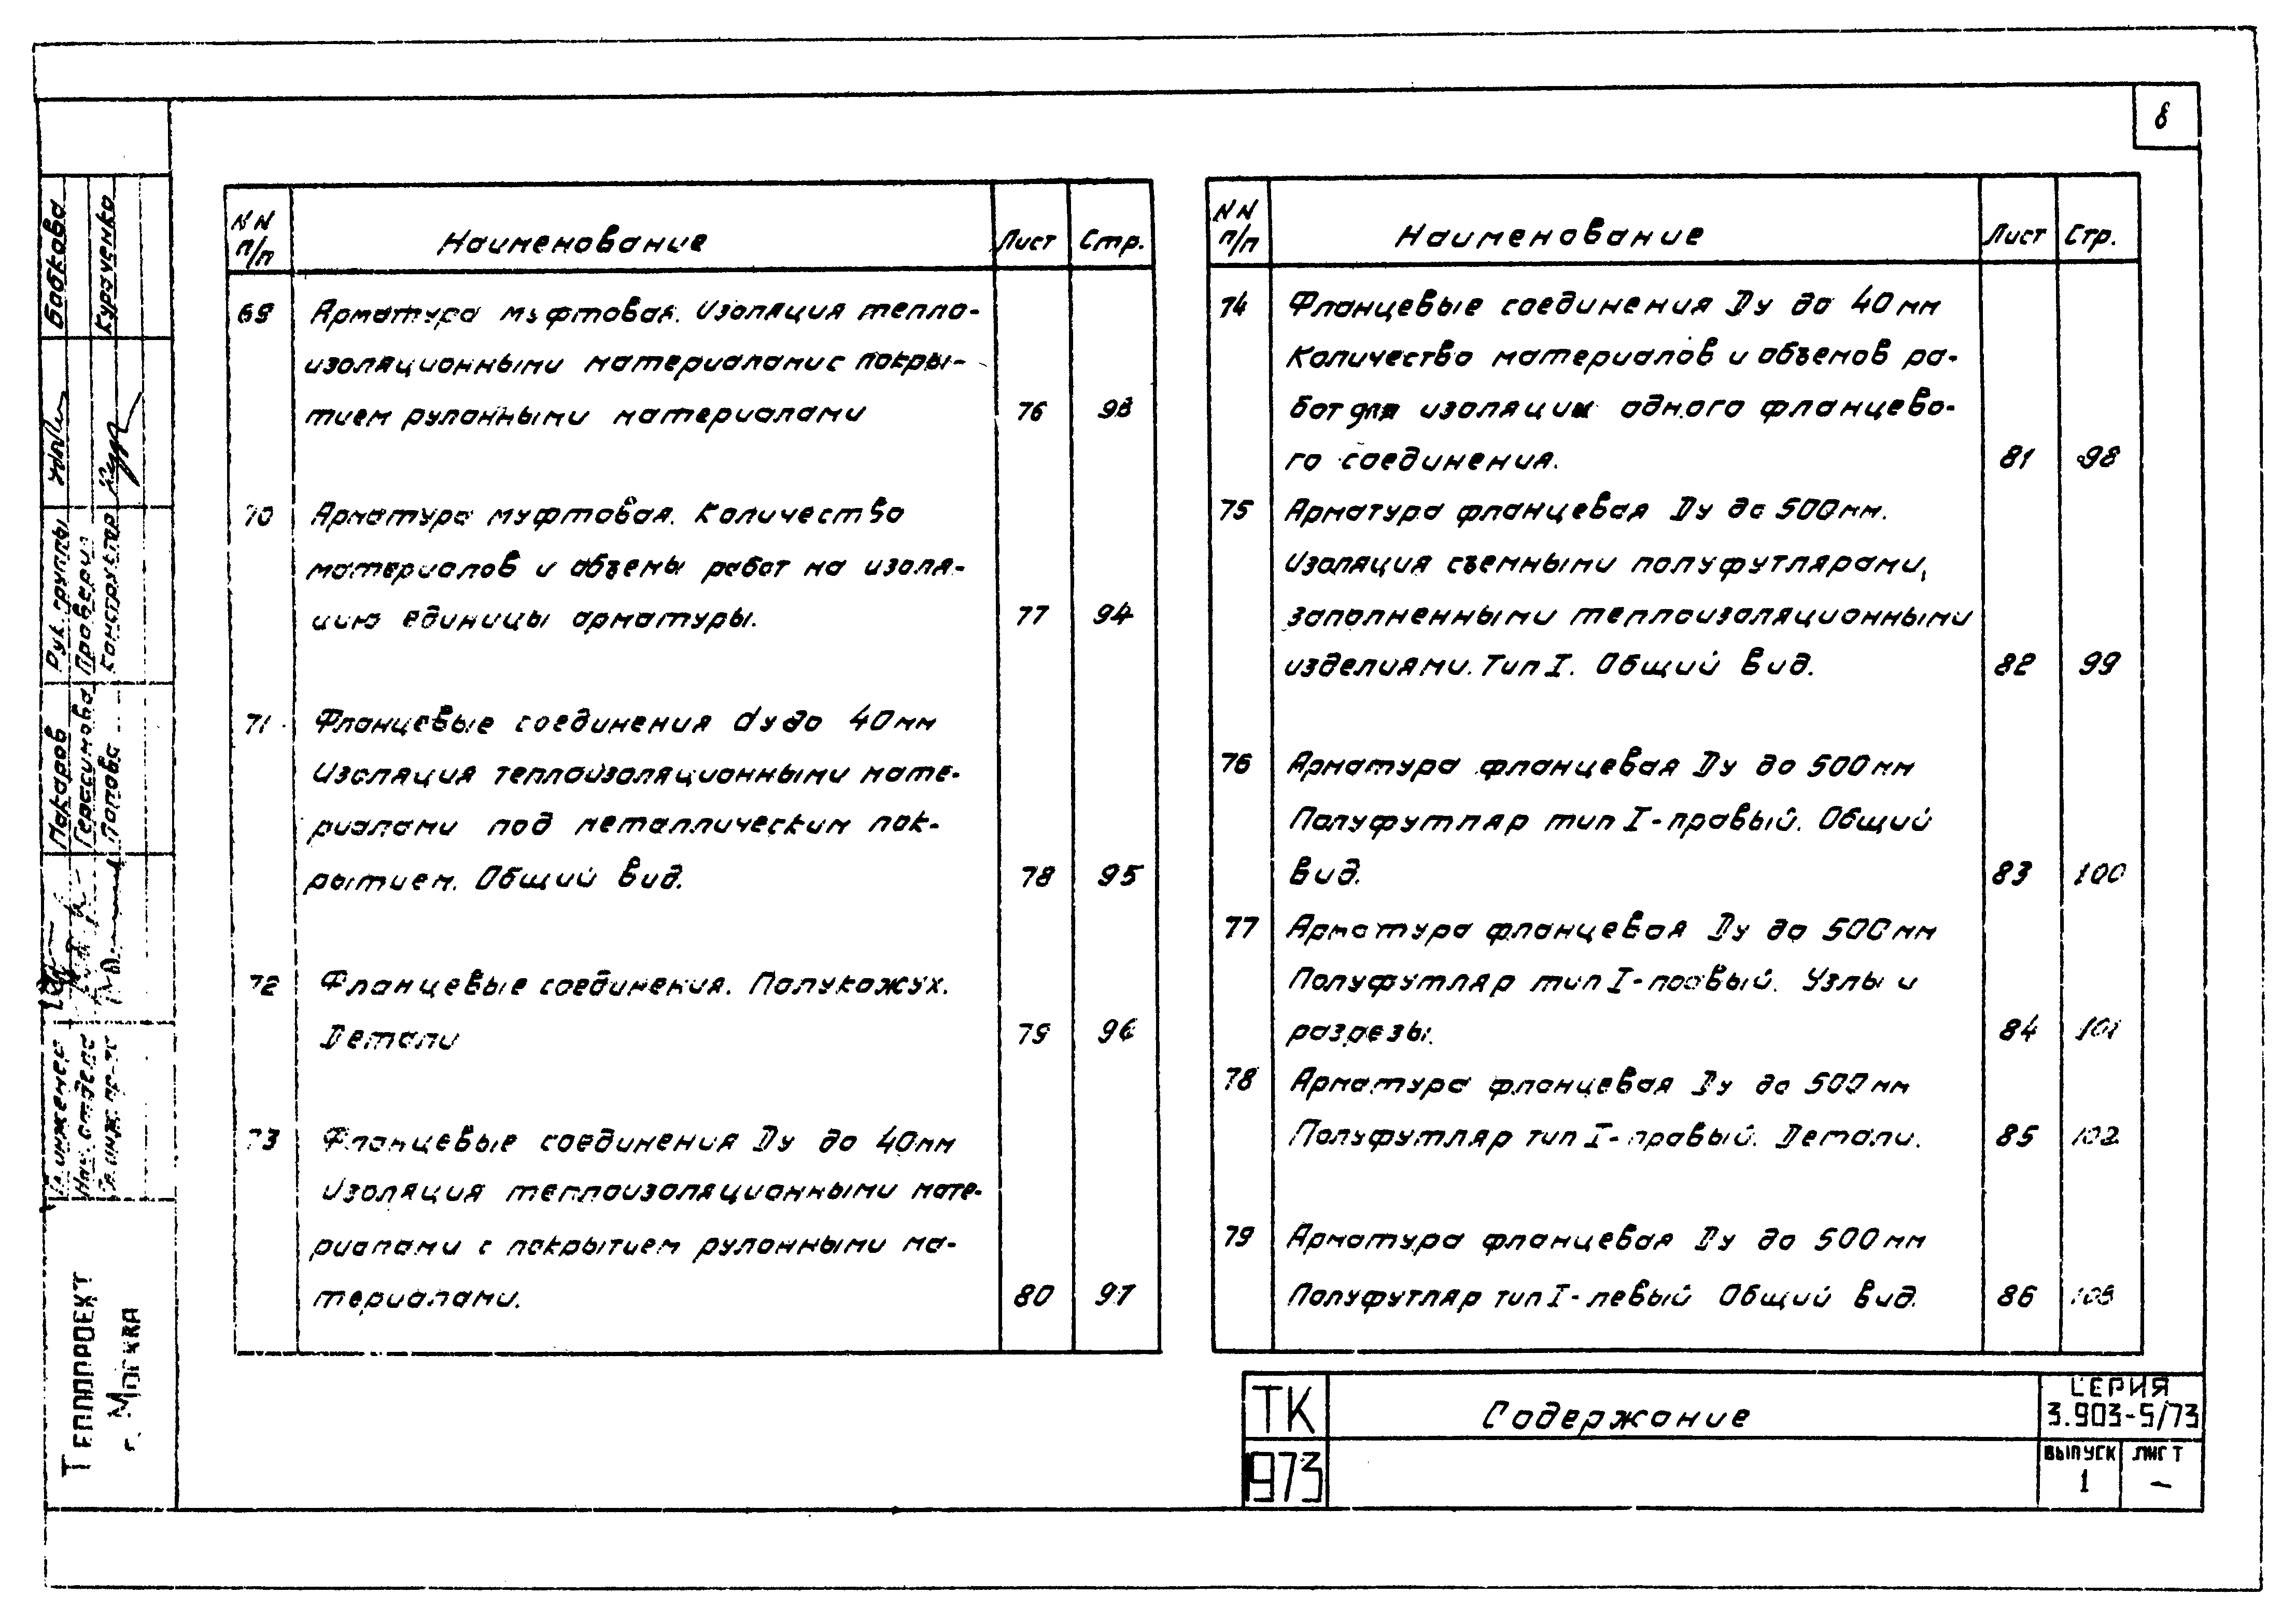 8
NN п/п Наименование Лист Стр.
69 Арматура муфтовая. Изоляция тепло-
изоляционными материалами с покры-
тием рулонными материалами 76 93
70 Арматура муфтовая. Количество
материалов и объемы работ на изоля-
цию единицы арматуры. 77 94
71 Фланцевые соединения dу до 40мм
Изоляция теплоизоляционными мате-
риалами под металлическим пок-
рытием. Общий вид. 78 95
72 Фланцевые соединения. Полукожух.
Детали 79 96
73 Фланцевые соединения Dу до 40мм
Изоляция теплоизоляционными мате-
риалами с покрытием рулонными ма-
териалами. 80 97
NN п/п Наименование Лист Стр.
74 Фланцевые соединения Dу до 40мм
Количество материалов и объемов ра-
бот для изоляции одного фланцево-
го соединения. 81 98
75 Арматура фланцевая Dу до 500мм.
Изоляция съемными полуфутлярами,
заполненными теплоизоляционными
изделиями. Тип I. Общий вид. 82 99
76 Арматура фланцевая Dу до 500мм
Полуфутляр тип I-правый. Общий
вид. 83 100
77 Арматура фланцевая Dу до 500мм
Полуфутляр тип I-правый. Узлы и
разрезы. 84 101
78 Арматура фланцевая Dу до 500мм
Полуфутляр тип I-правый. Детали. 85 102
79 Арматура фланцевая Dу до 500мм
Полуфутляр тип I-левый Общий вид. 86 103
ТК Содержание СЕРИЯ
3.903-5/73
1973 ВЫПУСК ЛИСТ
1 –
Теплопроект
г. Москва
Гл. инженер Макаров Рук. группы Бабкова
Нач. отдела Герасимова Проверил
Гл. инж. пр-та Попова Конструктор Курученко